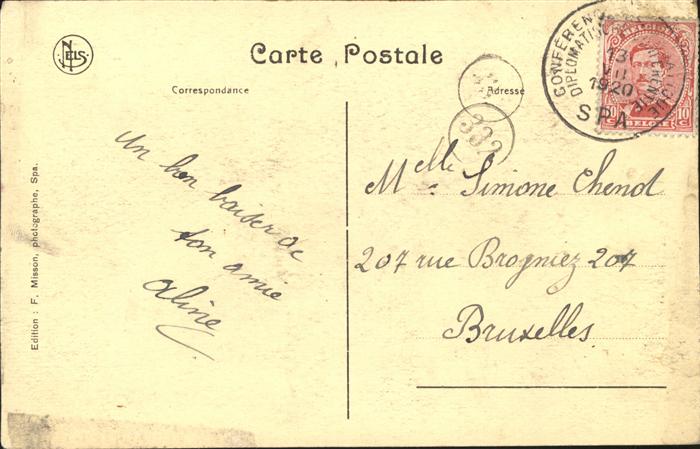 NELS
Carte Postale
Correspondance
Adresse
CONFÉRENCE
DIPLOMATIQUE
13
VII
1920
SPA
BELGIQUE
10 c
BELGIË
332
un bon baiser de
ton amie
Aline
Melle Simone Chenot
207 rue Brogniez 207
Bruxelles
Edition : F. Misson, photographe, Spa.